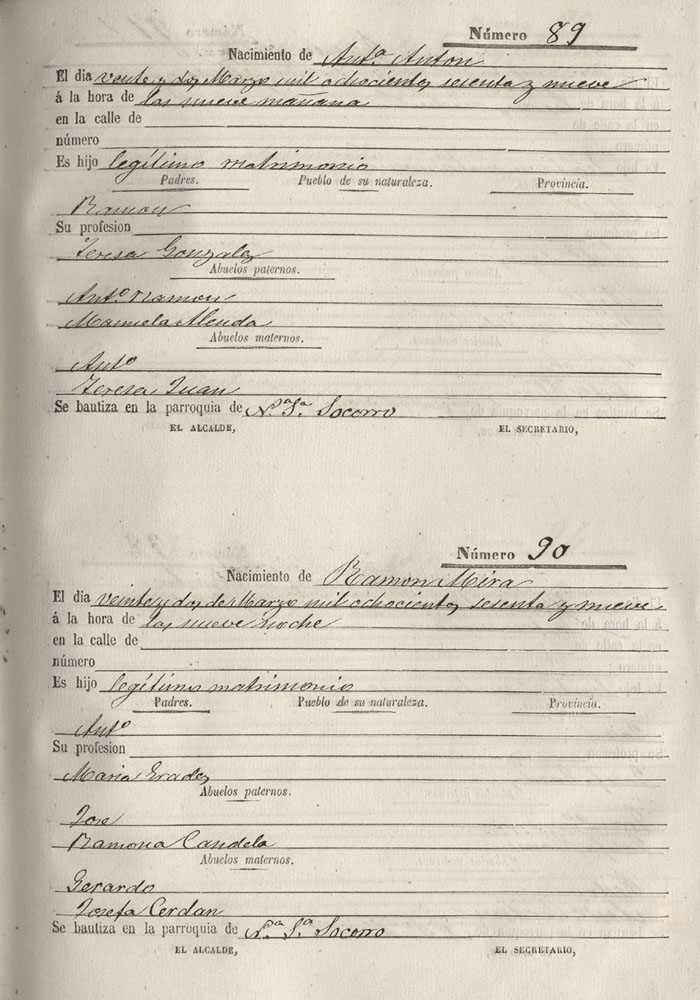 Número 89
Nacimiento de Antª Anton
El dia vente y dos Marzo mil ochocientos sesenta y nueve
á la hora de las nueve mañana
en la calle de
número
Es hijo legítimo matrimonio
Padres. Pueblo de su naturaleza. Provincia.
Ramon
Su profesion
Teresa Gonzalez
Abuelos paternos.
Antº Ramon
Manuela Alenda
Abuelos maternos.
Antº
Teresa Juan
Se bautiza en la parroquia de Nª Sª Socorro
EL ALCALDE, EL SECRETARIO,
Número 90
Nacimiento de Ramon Mira
El dia veinte y dos de Marzo mil ochocientos sesenta y nueve
á la hora de las nueve noche
en la calle de
número
Es hijo legítimo matrimonio
Padres. Pueblo de su naturaleza. Provincia.
Antº
Su profesion
Maria Grades
Abuelos paternos.
Jose
Ramona Candela
Abuelos maternos.
Gerardo
Josefa Cerdan
Se bautiza en la parroquia de Nª Sª Socorro
EL ALCALDE, EL SECRETARIO,